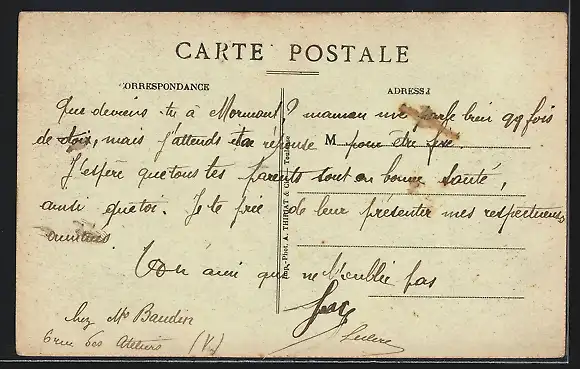 CARTE POSTALE
CORRESPONDANCE
ADRESSE
Que deviens-tu à Mormant ? maman me parle bien qq fois
de toi, mais j'attends ta réponse M pour être fixé.
J'espère que tous tes parents sont en bonne santé,
ainsi que toi. Je te prie de leur présenter mes respectueuses
amitiés
Ton ami qui ne t'oublie pas
Leclerc
chez Mr Baudin
6 rue des Ateliers (V.)
Imp.-Phot. A. THIRIAT & Cie, Toulouse